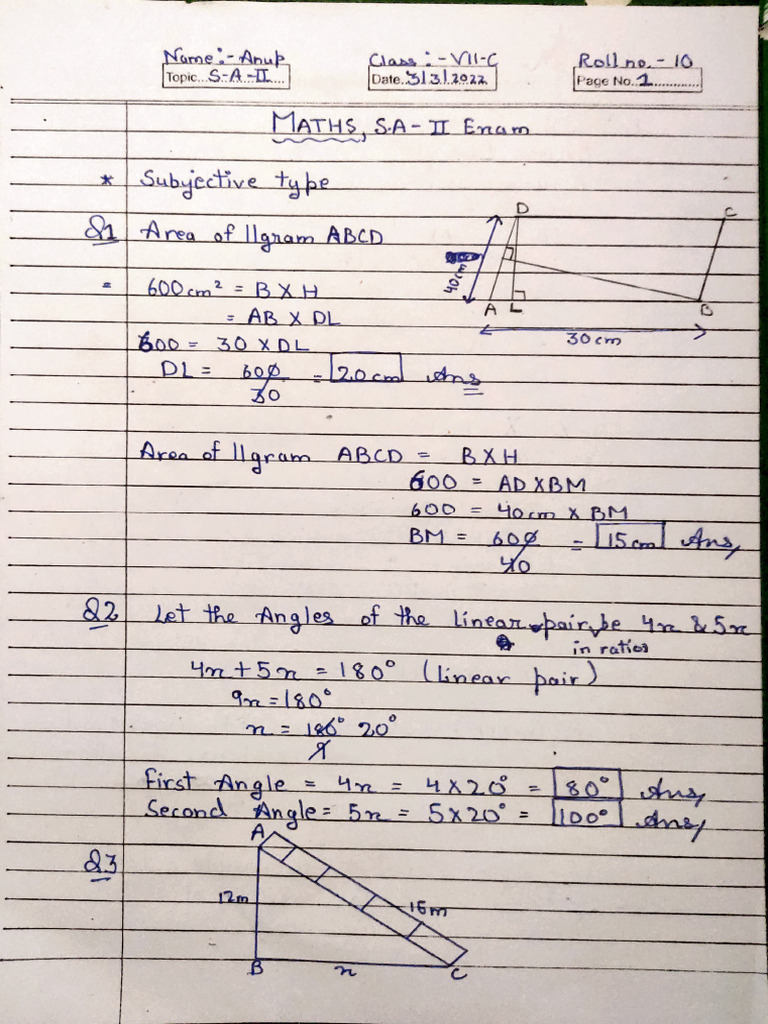 Name:- Anup Class:- VII-C Roll no. - 10
Topic... S-A-II... Date.. 3/3/2022 Page No. 1
MATHS, S.A- II Exam
* Subjective type
Q1 Area of llgram ABCD
= 600cm² = B X H
= AB X DL
600 = 30 X DL
DL = 600/30 = 20cm Ans
D C
40cm
A L B
30cm
Area of llgram ABCD = B X H
600 = AD X BM
600 = 40cm X BM
BM = 600/40 = 15cm Ans,
Q2 Let the Angles of the linear pair be 4x & 5x
in ratios
4x + 5x = 180° (linear pair)
9x = 180°
x = 180°/9 20°
First Angle = 4x = 4 X 20° = 80° Ans,
Second Angle = 5x = 5 X 20° = 100° Ans,
Q3 A
12m 15m
B x C